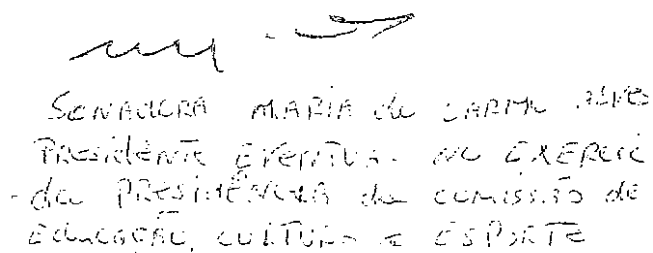 SENADORA MARIA do CARMO ALVES
PRESIDENTE EVENTUAL NO EXERCÍCI
da PRESIDÊNCIA da COMISSÃO de
EDUCAÇÃO, CULTURA E ESPORTE